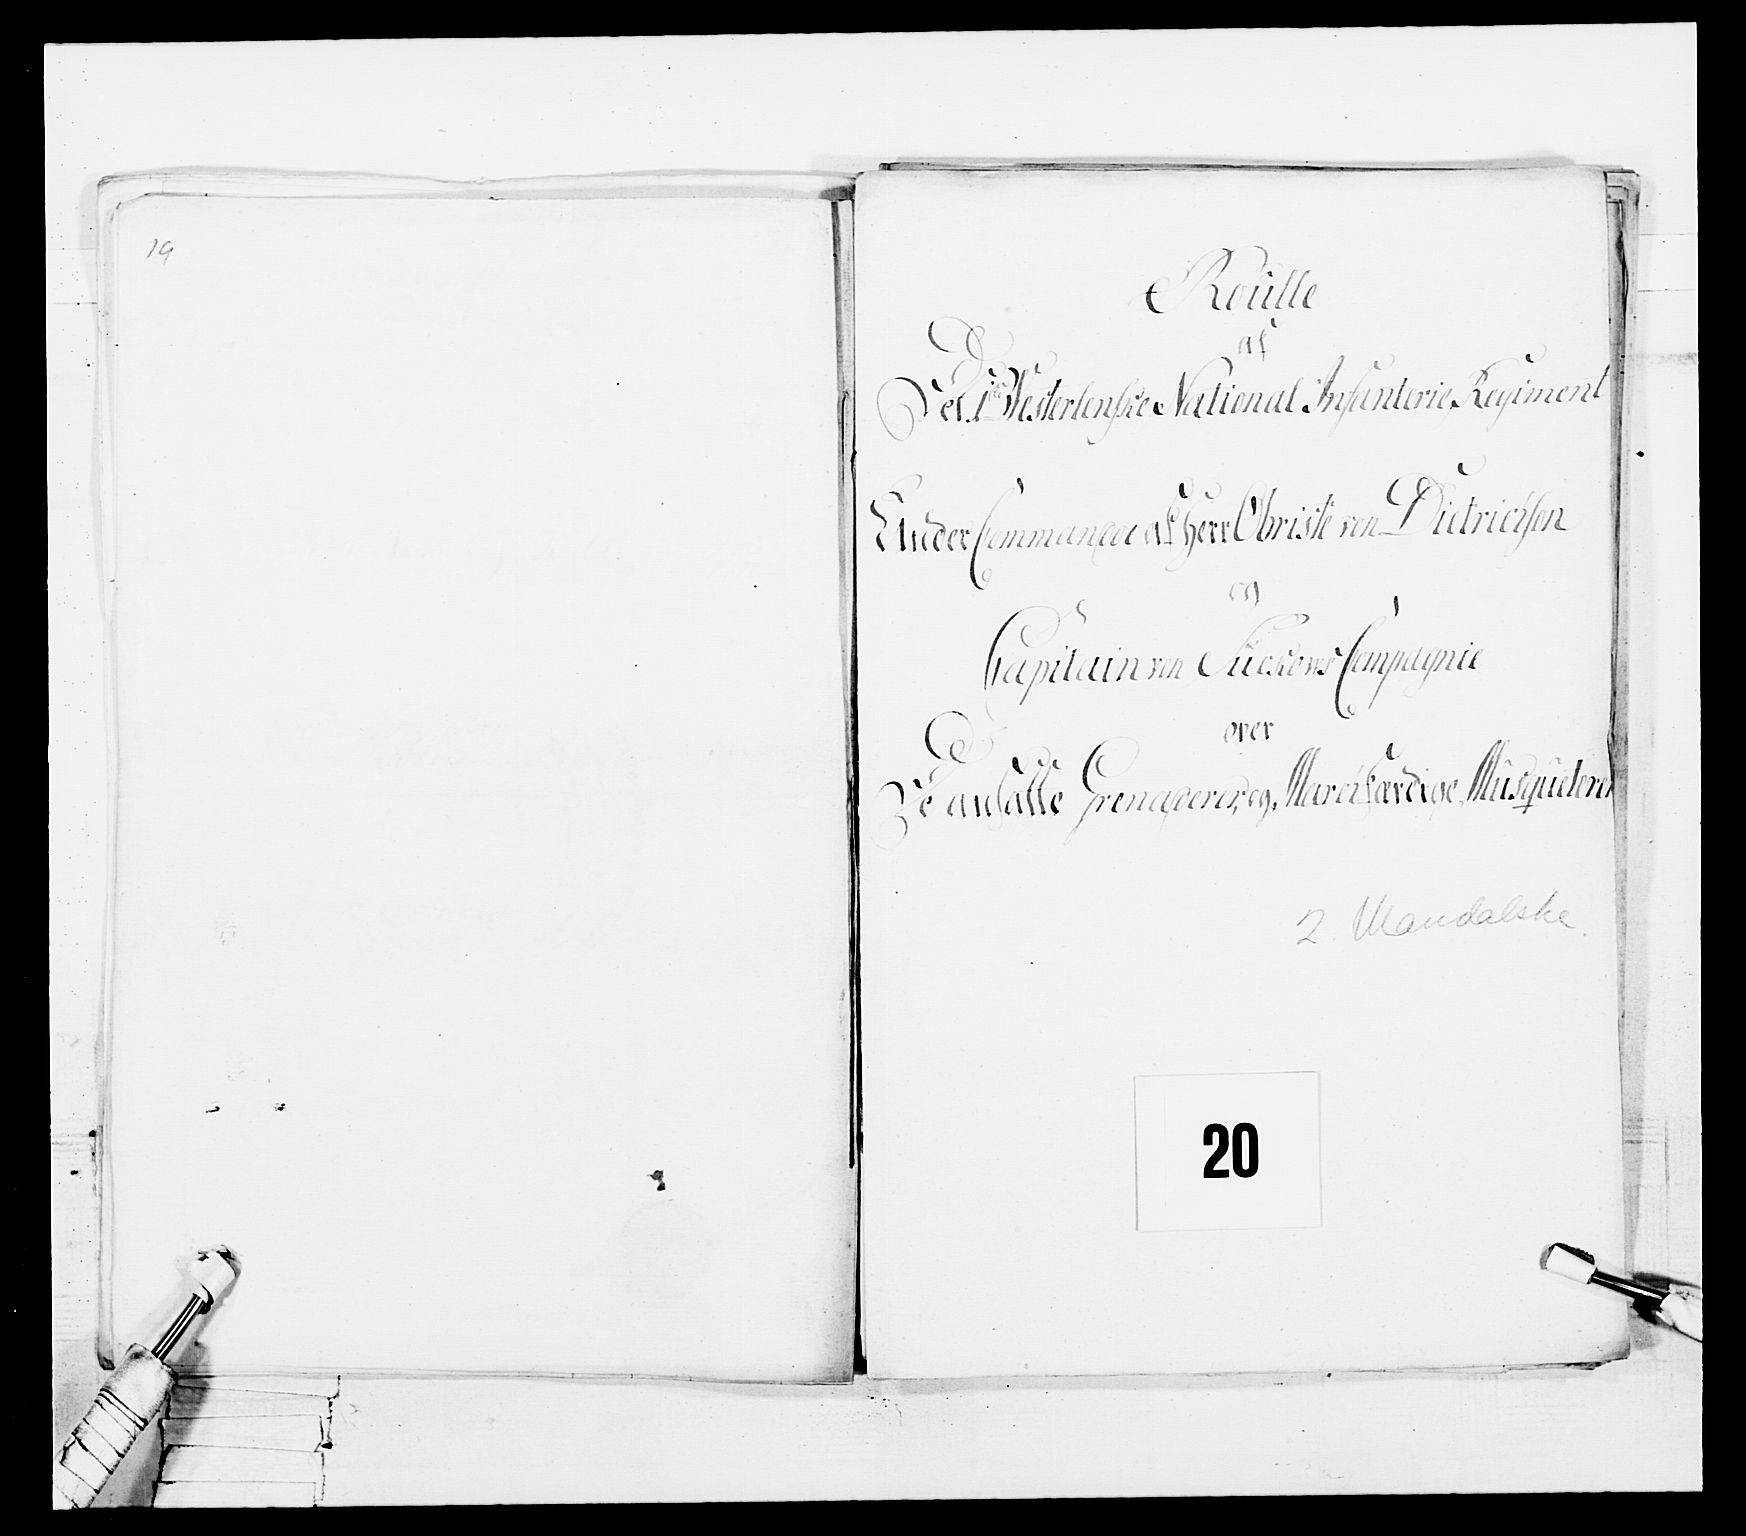 19
Roulle
af
Det 1ste Westerlenske National Infanterie Regiment
Under Commandoe af Herr Obriste von Dietrichson
og
Capitain von Suckows Compagnie
over
De ansatte Grenaderer, og Marchfærdige Musqueterer
2. Mandalske.
20